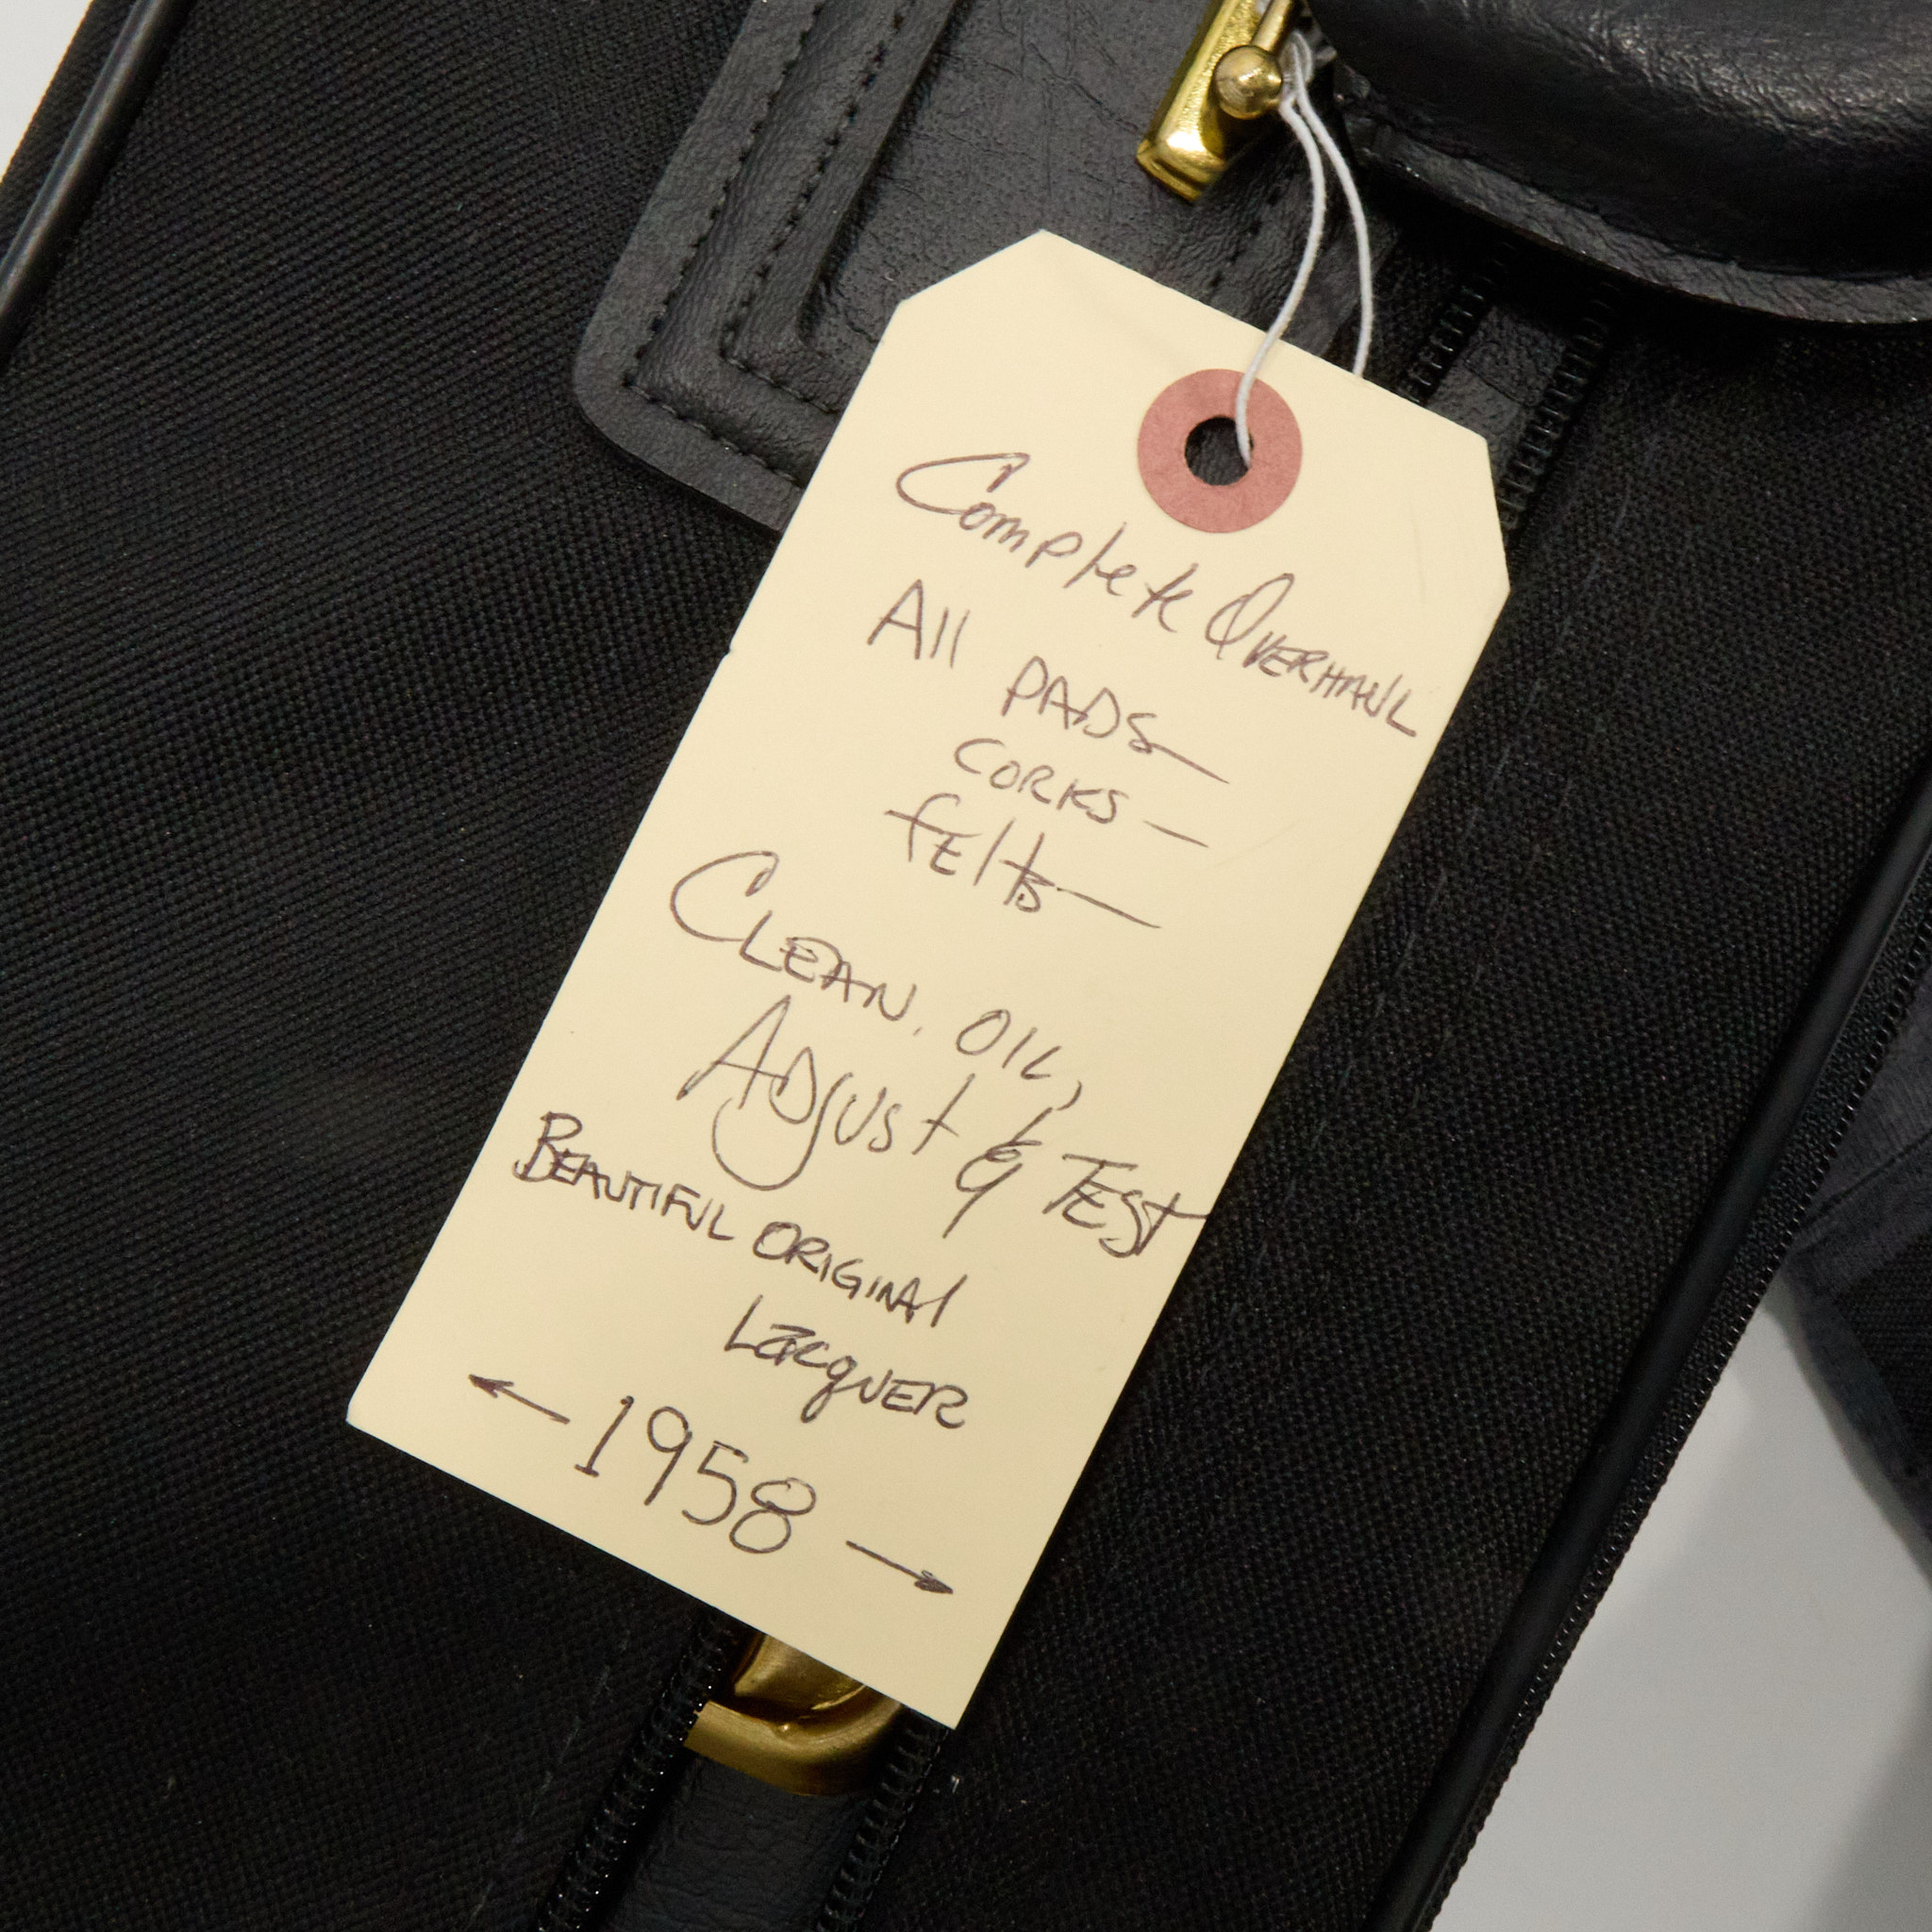 Complete OVERHAUL
All PADS—
CORKS—
fElts—
CLEAN, OIL,
ADJUSt & TESt
BEAUTIFUL ORIGINAl
LACQUER
← 1958 →